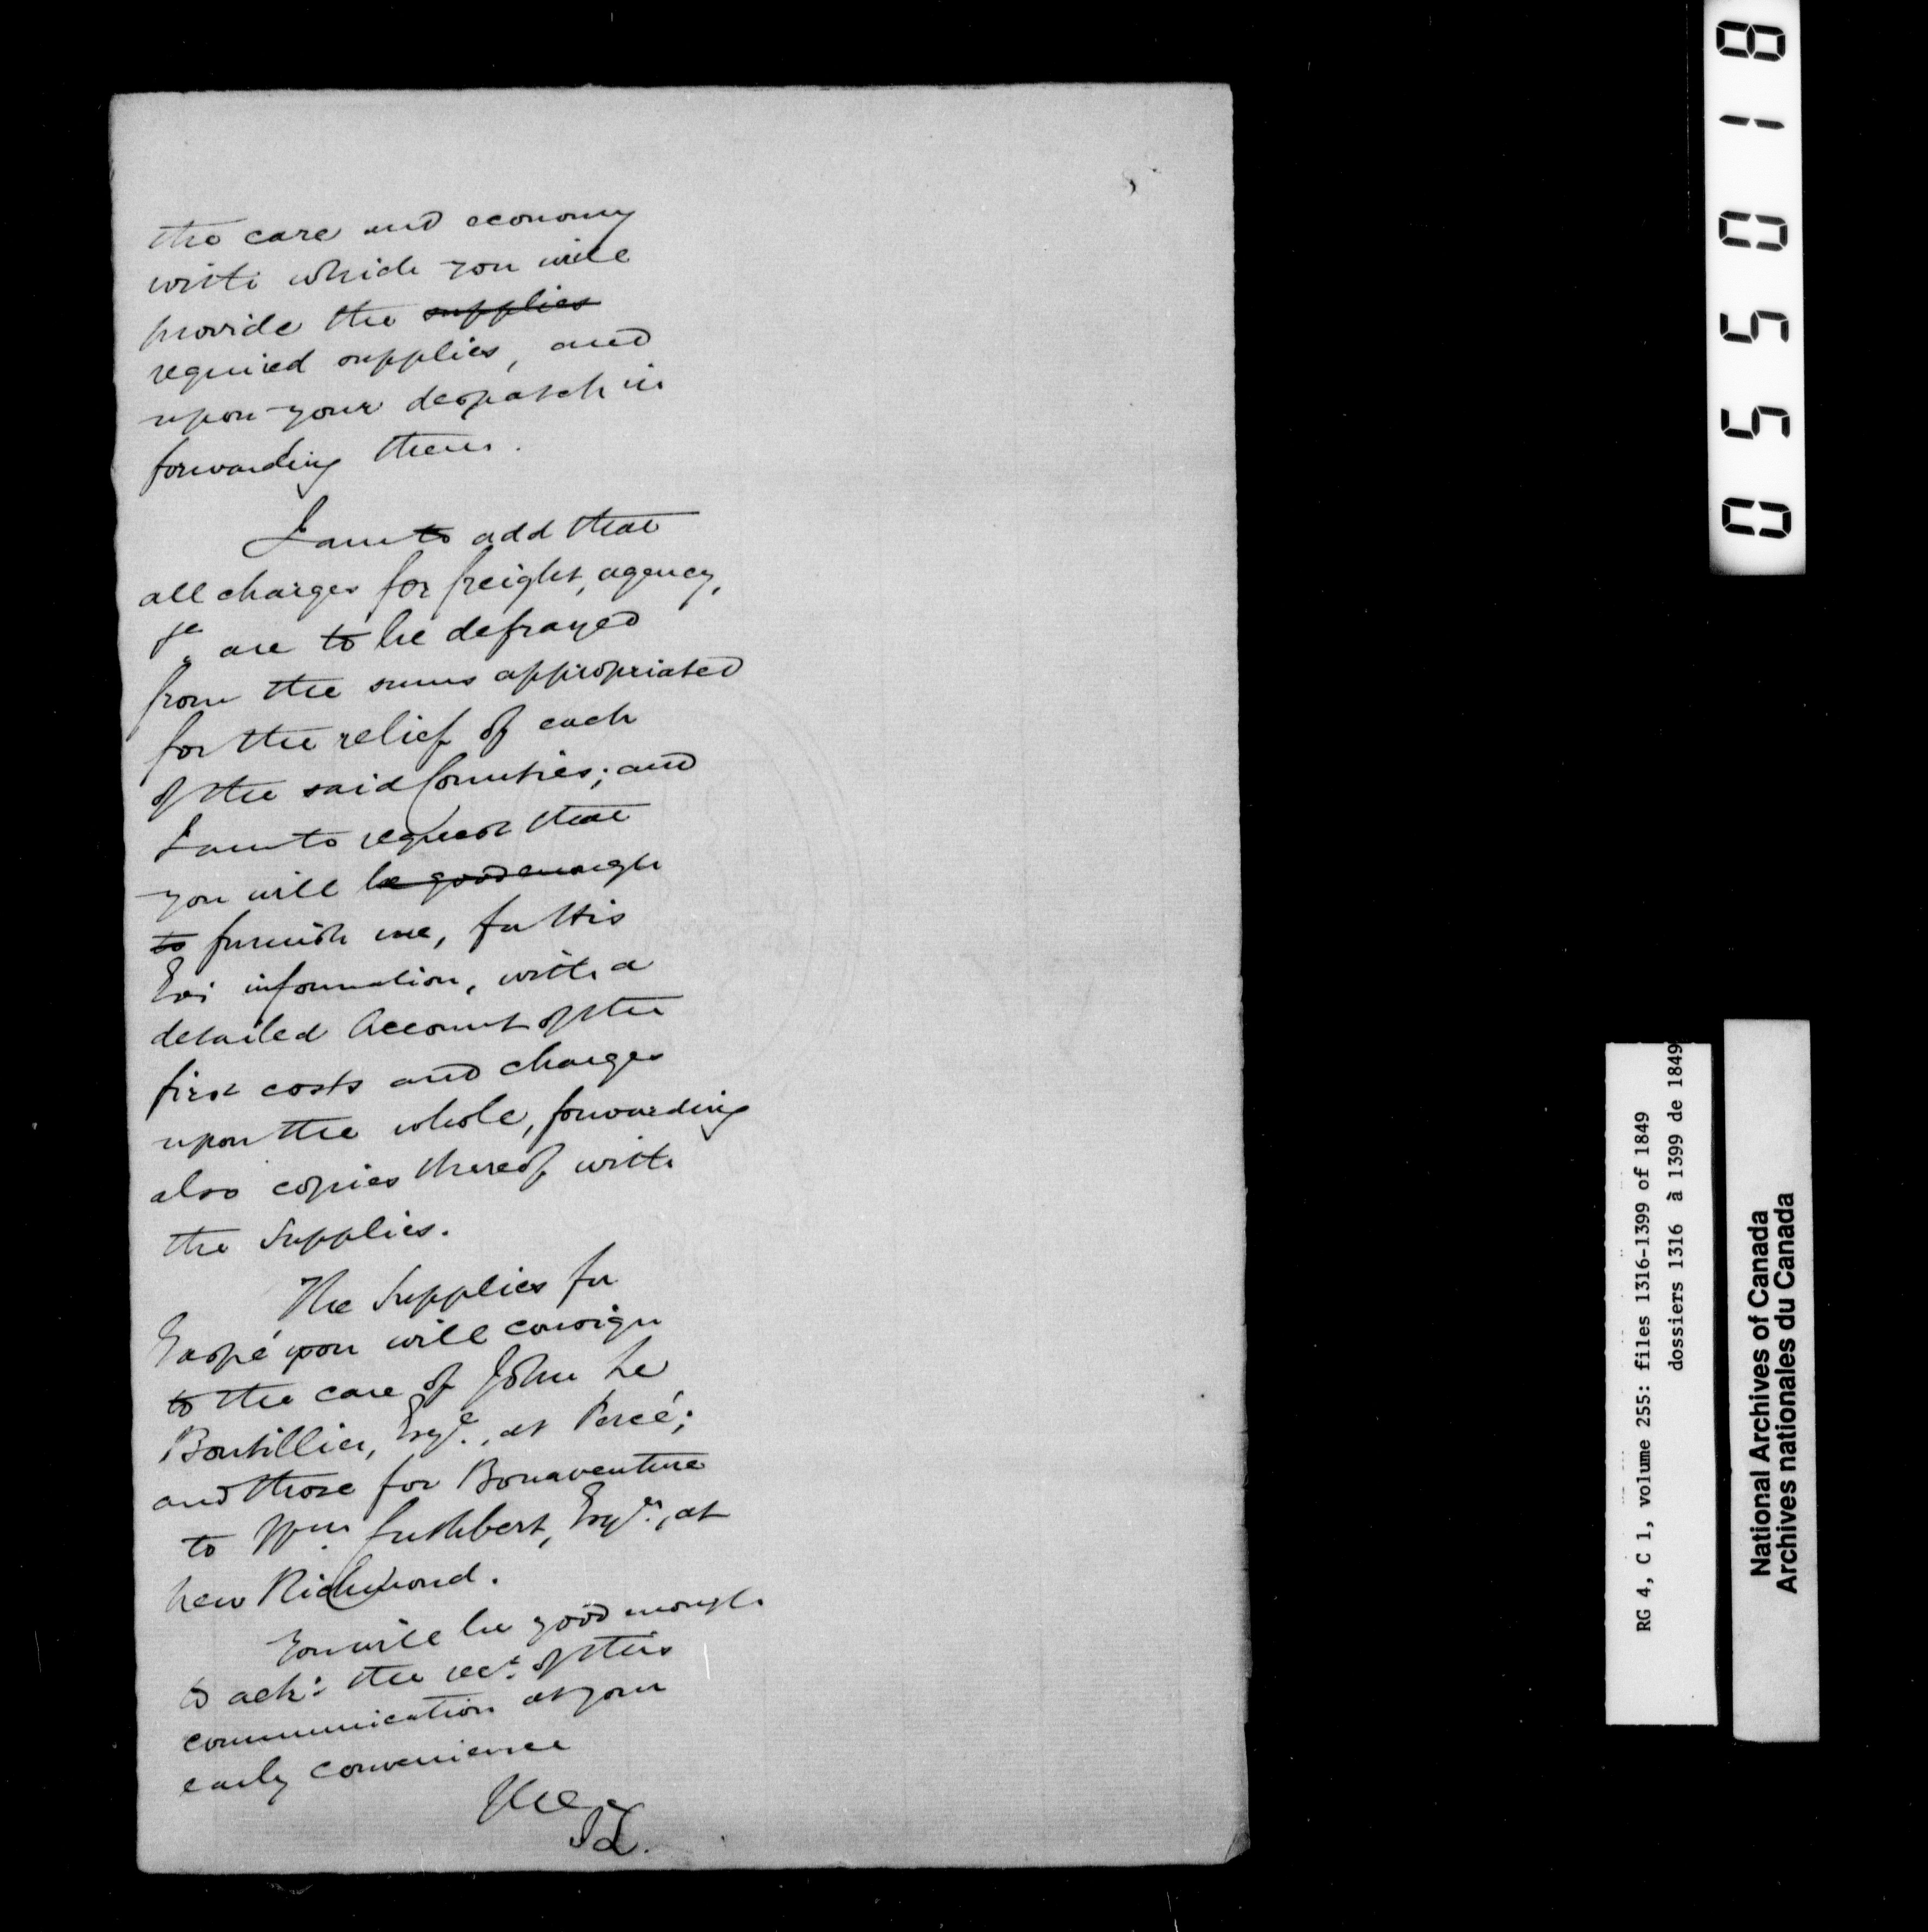 the care and economy
with which you will
provide the supplies
required supplies, and
upon your despatch in
forwarding them.
I am to add that
all charges for freight, agency,
&c. are to be defrayed
from the sums appropriated
for the relief of each
of the said Counties; and
I am to request that
you will be good enough
to furnish me, for His
Ex: information, with a
detailed Account of the
first costs and charges
upon the whole, forwarding
also copies thereof with
the Supplies.
The Supplies for
Gaspé you will consign
to the care of John Le
Boutillier, Esqe., at Percé;
and those for Bonaventure
to Wm. Cuthbert, Esqre., at
New Richmond.
You will be good enough
to ack: the rect. of this
communication at your
early convenience
055018
RG 4, C 1, volume 255: files 1316-1399 of 1849
dossiers 1316 à 1399 de 1849
National Archives of Canada
Archives nationales du Canada